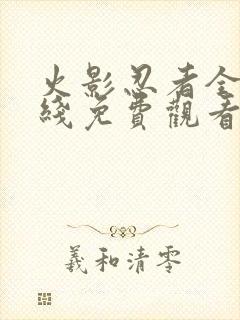 火影忍者全
綫免費觀看
羲和清零